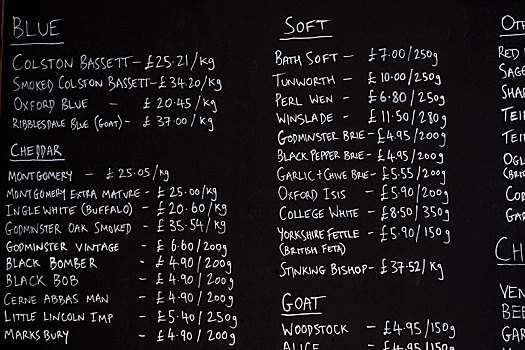 BLUE
COLSTON BASSETT - £25.21/kg
SMOKED COLSTON BASSETT - £34.20/kg
OXFORD BLUE - £20.45/kg
RIBBLESDALE BLUE (GOAT) - £37.00/kg
CHEDDAR
MONTGOMERY - £25.05/kg
MONTGOMERY EXTRA MATURE - £25.00/kg
INGLEWHITE (BUFFALO) - £20.60/kg
GODMINSTER OAK SMOKED - £35.54/kg
GODMINSTER VINTAGE - £6.60/200g
BLACK BOMBER - £4.90/200g
BLACK BOB - £4.90/200g
CERNE ABBAS MAN - £4.90/200g
LITTLE LINCOLN IMP - £5.40/250g
MARKSBURY - £4.90/200g
SOFT
BATH SOFT - £7.00/250g
TUNWORTH - £10.00/250g
PERL WEN - £6.80/250g
WINSLADE - £11.50/280g
GODMINSTER BRIE - £4.95/200g
BLACK PEPPER BRIE - £4.95/200g
GARLIC + CHIVE BRIE - £5.55/200g
OXFORD ISIS - £5.90/200g
COLLEGE WHITE - £8.50/350g
YORKSHIRE FETTLE - £5.90/150g
(BRITISH FETA)
STINKING BISHOP - £37.52/kg
GOAT
WOODSTOCK - £4.95/150g
ALICE - £4.95/150g
OT
RED
SAGE
SHA
TEI
TEI
OGL
(BRIT
COR
GAR
CH
VEN
BEE
GAR